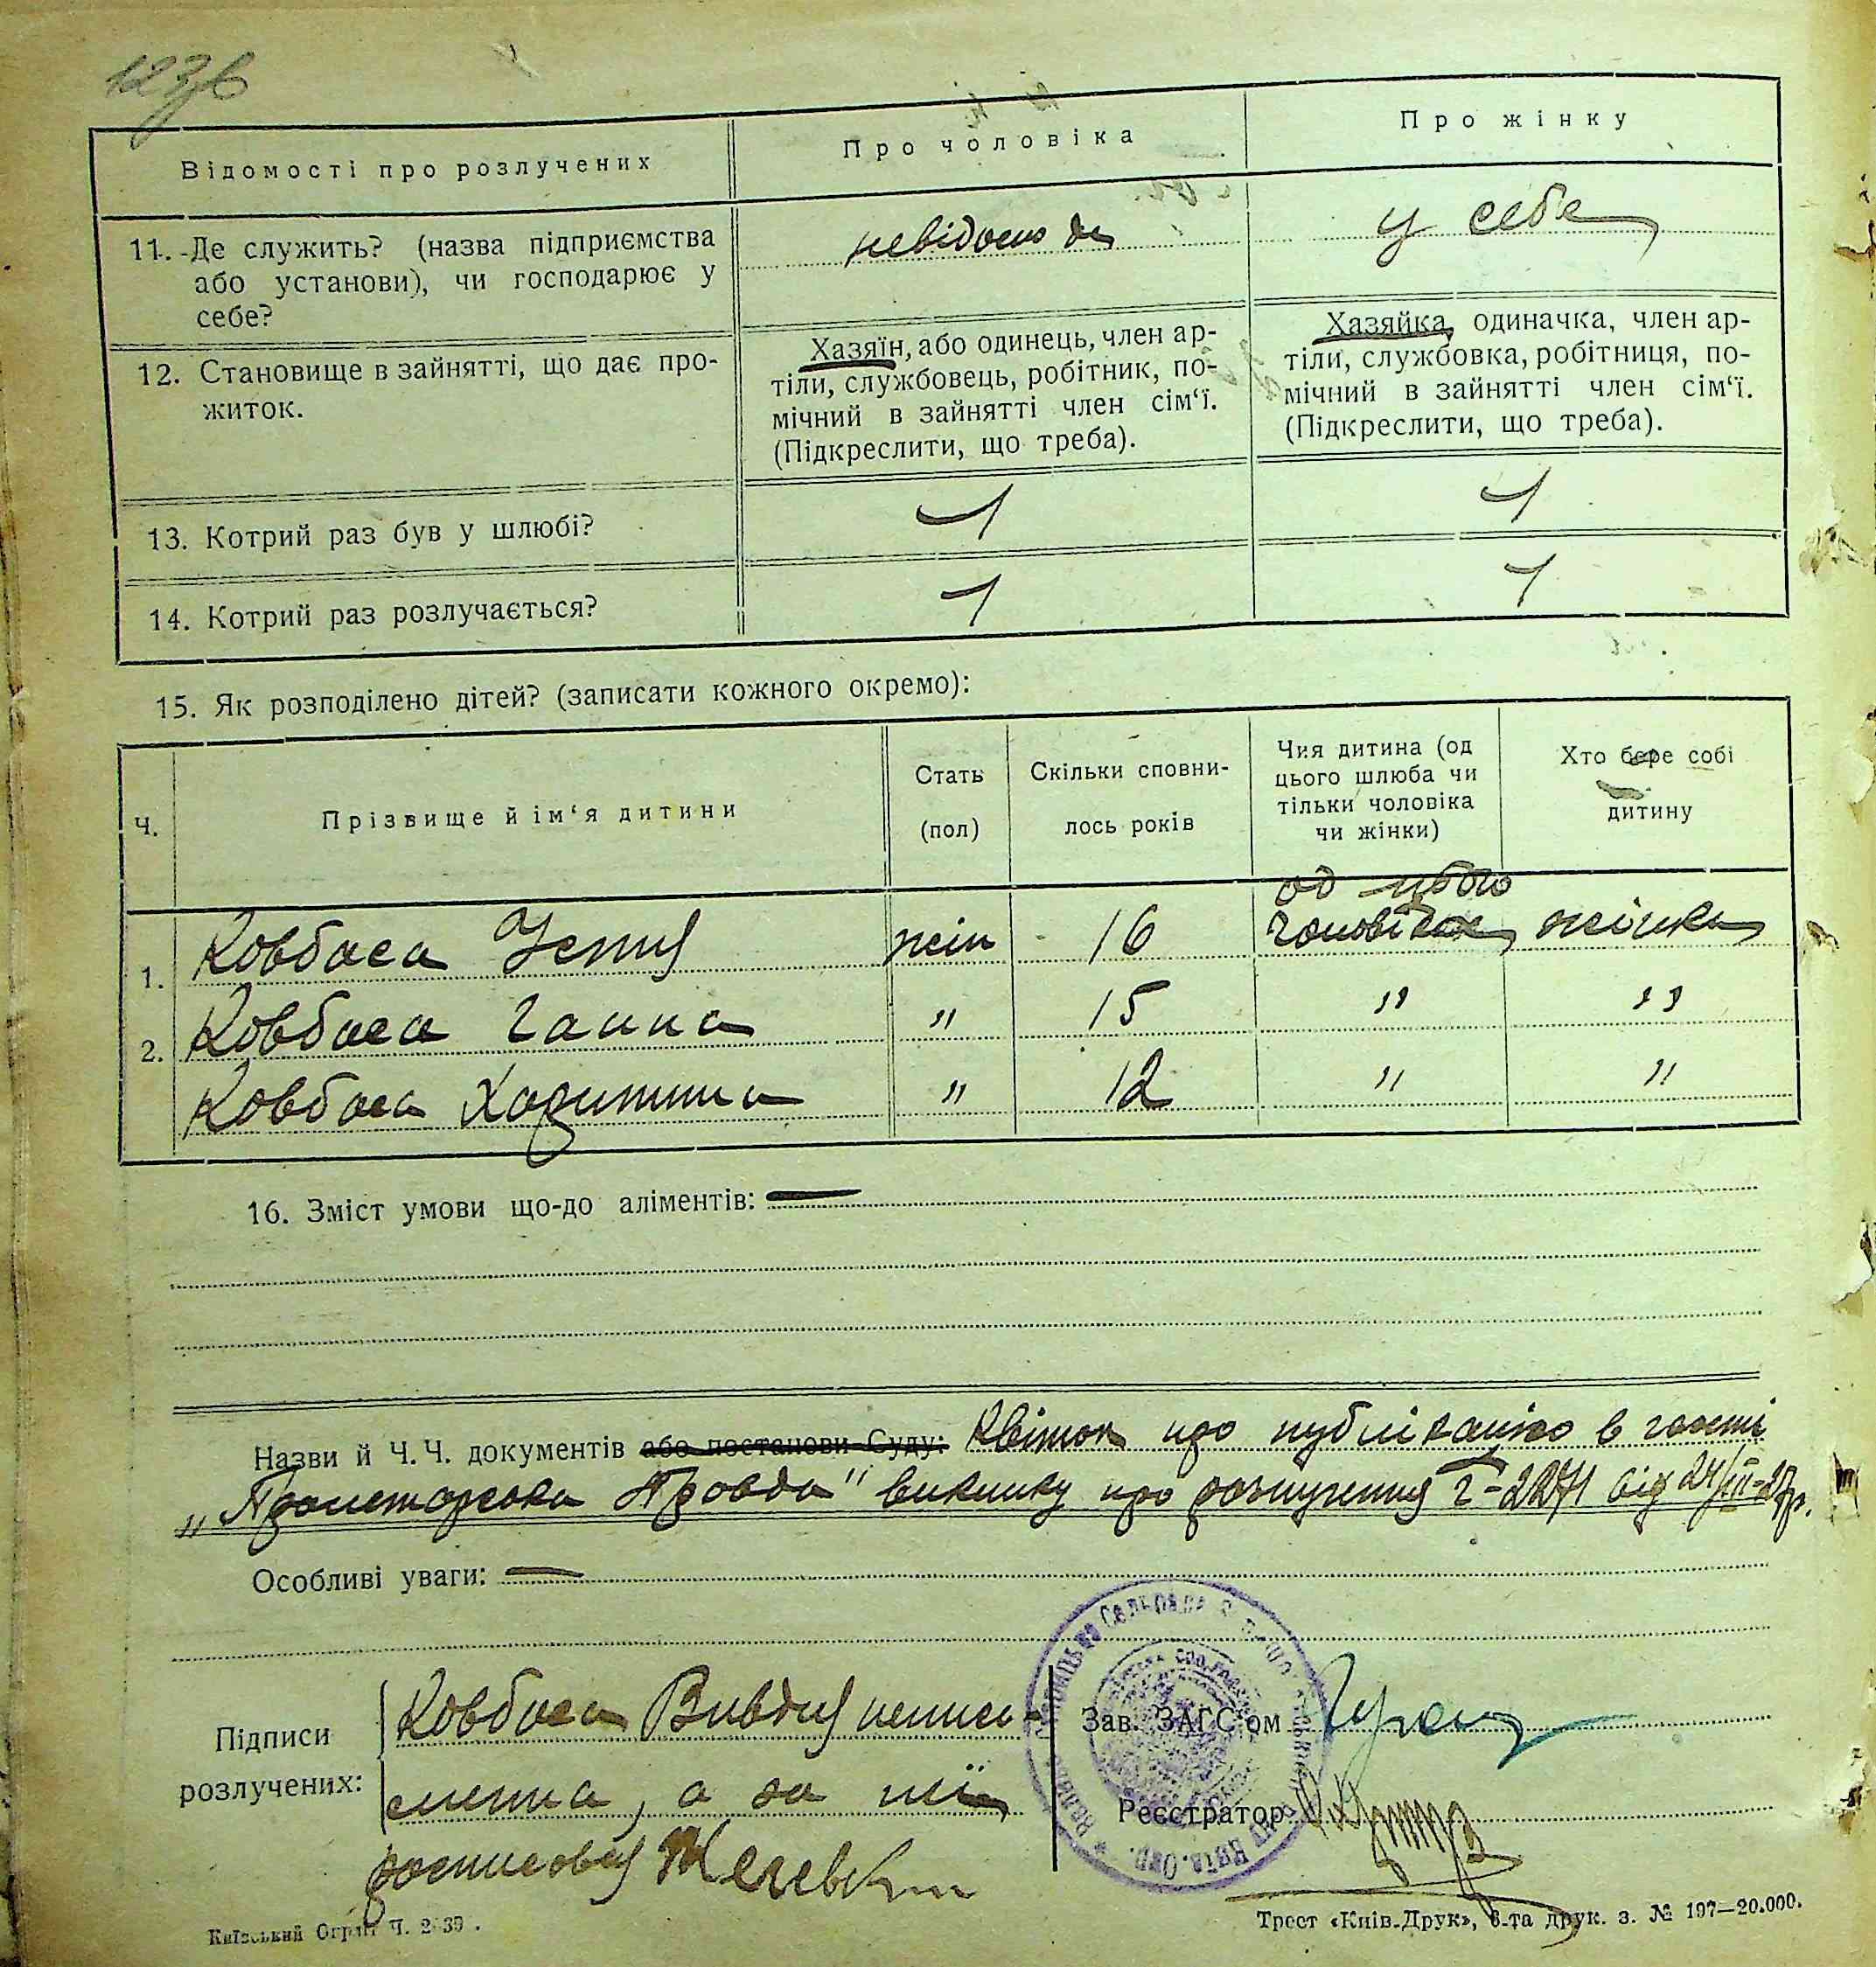 123б
Відомості про розлучених
Про чоловіка
Про жінку
11. Де служить? (назва підприємства
або установи), чи господарює у
себе?
невідомо де
у себе
12. Становище в зайнятті, що дає про-
житок.
Хазяїн, або одинець, член ар-
тіли, службовець, робітник, по-
мічний в зайнятті член сім‘ї.
(Підкреслити, що треба).
Хазяйка, одиначка, член ар-
тіли, службовка, робітниця, по-
мічний в зайнятті член сім‘ї.
(Підкреслити, що треба).
13. Котрий раз був у шлюбі?
1
1
14. Котрий раз розлучається?
1
1
15. Як розподілено дітей? (записати кожного окремо):
Ч.
Прізвище й ім‘я дитини
Стать
(пол)
Скільки сповни-
лось років
Чия дитина (од
цього шлюба чи
тільки чоловіка
чи жінки)
Хто бере собі
дитину
од цього
1. Ковбаса Устия жін 16 чоловіка жінка
2. Ковбаса Ганна " 15 " "
Ковбаса Харитина " 12 " "
16. Зміст умови що-до аліментів: —
Назви й Ч. Ч. документів або постанови Суду: Квіток про публікацію в газеті
„Пролетарська Правда" виклику про розлучення від 24/III-27р.
Особливі уваги: —
Підписи
розлучених:
Ковбаса Вивдя неписьменна, а за неї
росписовся
Зав. ЗАГС‘ом
Реєстратор
Київський Окрліт Ч. 2 39.
Трест «Київ-Друк», 6-та друк. з. № 197—20.000.